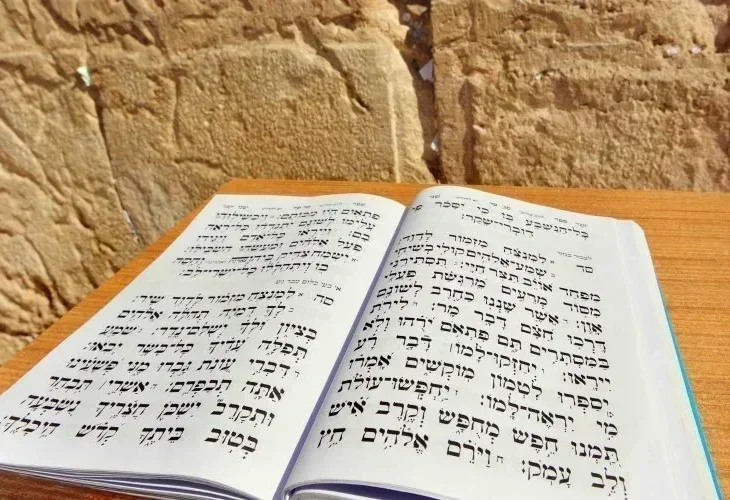 כָּל־הַנִּשְׁבָּע בּוֹ כִּי יִסָּכֵר פִּי
דוֹבְרֵי־שָׁקֶר:
סד לַמְנַצֵּחַ מִזְמוֹר לְדָוִד:
שְׁמַע־אֱלֹהִים קוֹלִי בְשִׂיחִי
מִפַּחַד אוֹיֵב תִּצֹּר חַיָּי: תַּסְתִּירֵנִי
מִסּוֹד מְרֵעִים מֵרִגְשַׁת פֹּעֲלֵי
אָוֶן: אֲשֶׁר שָׁנְנוּ כַחֶרֶב לְשׁוֹנָם
דָּרְכוּ חִצָּם דָּבָר מָר: לִירֹת
בַּמִּסְתָּרִים תָּם פִּתְאֹם יֹרֻהוּ וְלֹא
יִירָאוּ: יְחַזְּקוּ־לָמוֹ דָּבָר רָע
יְסַפְּרוּ לִטְמוֹן מוֹקְשִׁים אָמְרוּ
מִי יִרְאֶה־לָּמוֹ: יַחְפְּשׂוּ־עוֹלֹת
תַּמְנוּ חֵפֶשׂ מְחֻפָּשׂ וְקֶרֶב אִישׁ
וְלֵב עָמֹק: וַיֹּרֵם אֱלֹהִים חֵץ
פִּתְאוֹם הָיוּ מַכּוֹתָם: וַיַּכְשִׁילוּהוּ
עָלֵימוֹ לְשׁוֹנָם יִתְנֹדְדוּ כָּל־רֹאֵה
בָם: וַיִּירְאוּ כָּל־אָדָם וַיַּגִּידוּ
פֹּעַל אֱלֹהִים וּמַעֲשֵׂהוּ הִשְׂכִּילוּ:
יִשְׂמַח צַדִּיק בַּיהוָה וְחָסָה
בוֹ וְיִתְהַלְלוּ כָּל־יִשְׁרֵי־לֵב:
סה לַמְנַצֵּחַ מִזְמוֹר לְדָוִד שִׁיר:
לְךָ דֻמִיָּה תְהִלָּה אֱלֹהִים
בְּצִיּוֹן וּלְךָ יְשֻׁלַּם־נֶדֶר: שֹׁמֵעַ
תְּפִלָּה עָדֶיךָ כָּל־בָּשָׂר יָבֹאוּ:
דִּבְרֵי עֲוֺנֹת גָּבְרוּ מֶנִּי פְּשָׁעֵינוּ
אַתָּה תְכַפְּרֵם: אַשְׁרֵי תִּבְחַר
וּתְקָרֵב יִשְׁכֹּן חֲצֵרֶיךָ נִשְׂבְּעָה
בְּטוּב בֵּיתֶךָ קְדֹשׁ הֵיכָלֶךָ: